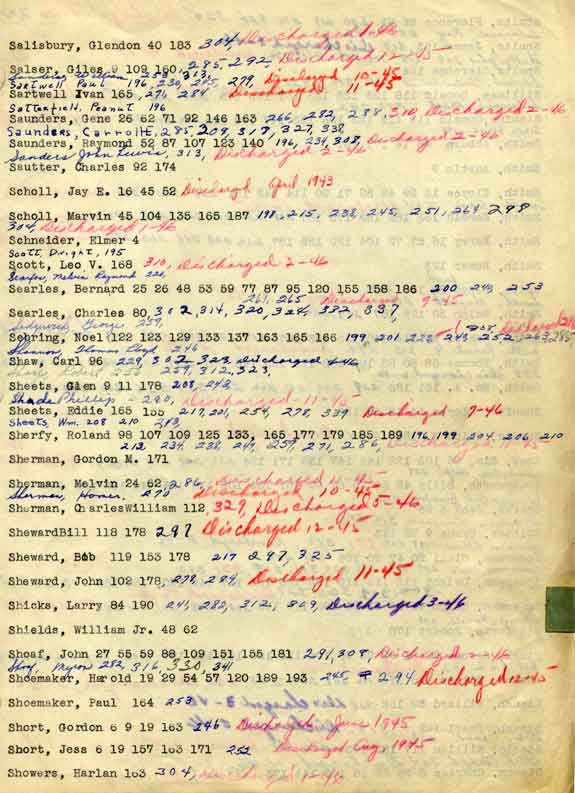 Salisbury, Glendon 40 183 304, Discharged 1-46
Salser, Giles 9 109 160, 285, 292, Discharged 12-45
William 253, 313,
Sartwell Paul 196, 230, 279, Discharged 10-45
Sartwell Ivan 165, 276, 284 Discharged 11-45
Satterfield, Peanut 196
Saunders, Gene 26 62 71 92 146 163 266, 282, 288, 310, Discharged 2-46
Saunders, 285, 209, 317, 327, 338,
Saunders, Raymond 52 87 107 123 140 196, 234, 308, Discharged 2-46
Sanders John Lewis, 313, Discharged 2-46
Sautter, Charles 92 174
Scholl, Jay E. 16 45 52 Discharged April 1943
Scholl, Marvin 45 104 135 165 187 198, 215, 238, 245, 251, 264, 298
304, Discharged 1-46
Schneider, Elmer 4
Scott, Dwight, 195
Scott, Leo V. 168 310, Discharged 2-46
Raymond
Searles, Bernard 25 26 48 53 59 77 87 95 120 155 158 186 200 243 253
261, 265 Discharged 9-45
Searles, Charles 80, 302, 314, 320, 324, 332, 337,
George 259,
Sehring, Noel 122 123 129 133 137 163 165 166 199, 201 228, 243 252
Shannon, Thomas Lloyd 246
Shaw, Carl 96 229, 302, 323, Discharged
259, 312, 323,
Sheets, Glen 9 11 178 208, 243,
Shade Phillip - 290, Discharged-11-45
Sheets, Eddie 165 155 217, 201, 254, 278, 339 Discharged 7-46
Sheets, Wm. 208 210 213,
Sherfy, Roland 98 107 109 125 133, 165 177 179 185 189 196, 199, 204, 206, 210
212 234, 238, 249, 257, 271, 286, Discharged 11-45
Sherman, Gordon M. 171
Sherman, Melvin 24 62 286, Discharged 11-45
Sherman, Homer, 270 Discharged 10-45
Sherman, CharlesWilliam 112, 329, Discharged 5-46
ShewardBill 118 178 297 Discharged 12-45
Sheward, Bob 119 153 178 217 297, 325
Sheward, John 102 178, 278, 284, Discharged 11-45
Shicks, Larry 84 190 241, 282, 312, 309, Discharged 3-46
Shields, William Jr. 48 62
Shoaf, John 27 55 59 88 109 151 155 181 291, 308, Discharged 2-46
Myron 282, 316, 330, 341
Shoemaker, Harold 19 29 54 57 120 189 193 245, 294 Discharged 12-45
Shoemaker, Paul 164 253
Short, Gordon 6 9 19 163 246 Discharged June 1945
Short, Jess 6 19 157 163 171 252 Discharged Aug 1945
Showers, Harlan 163 304, Discharged 12-45